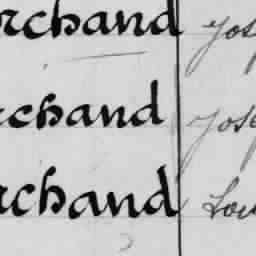 rchand Jos
rchand Jose
rchand Lou